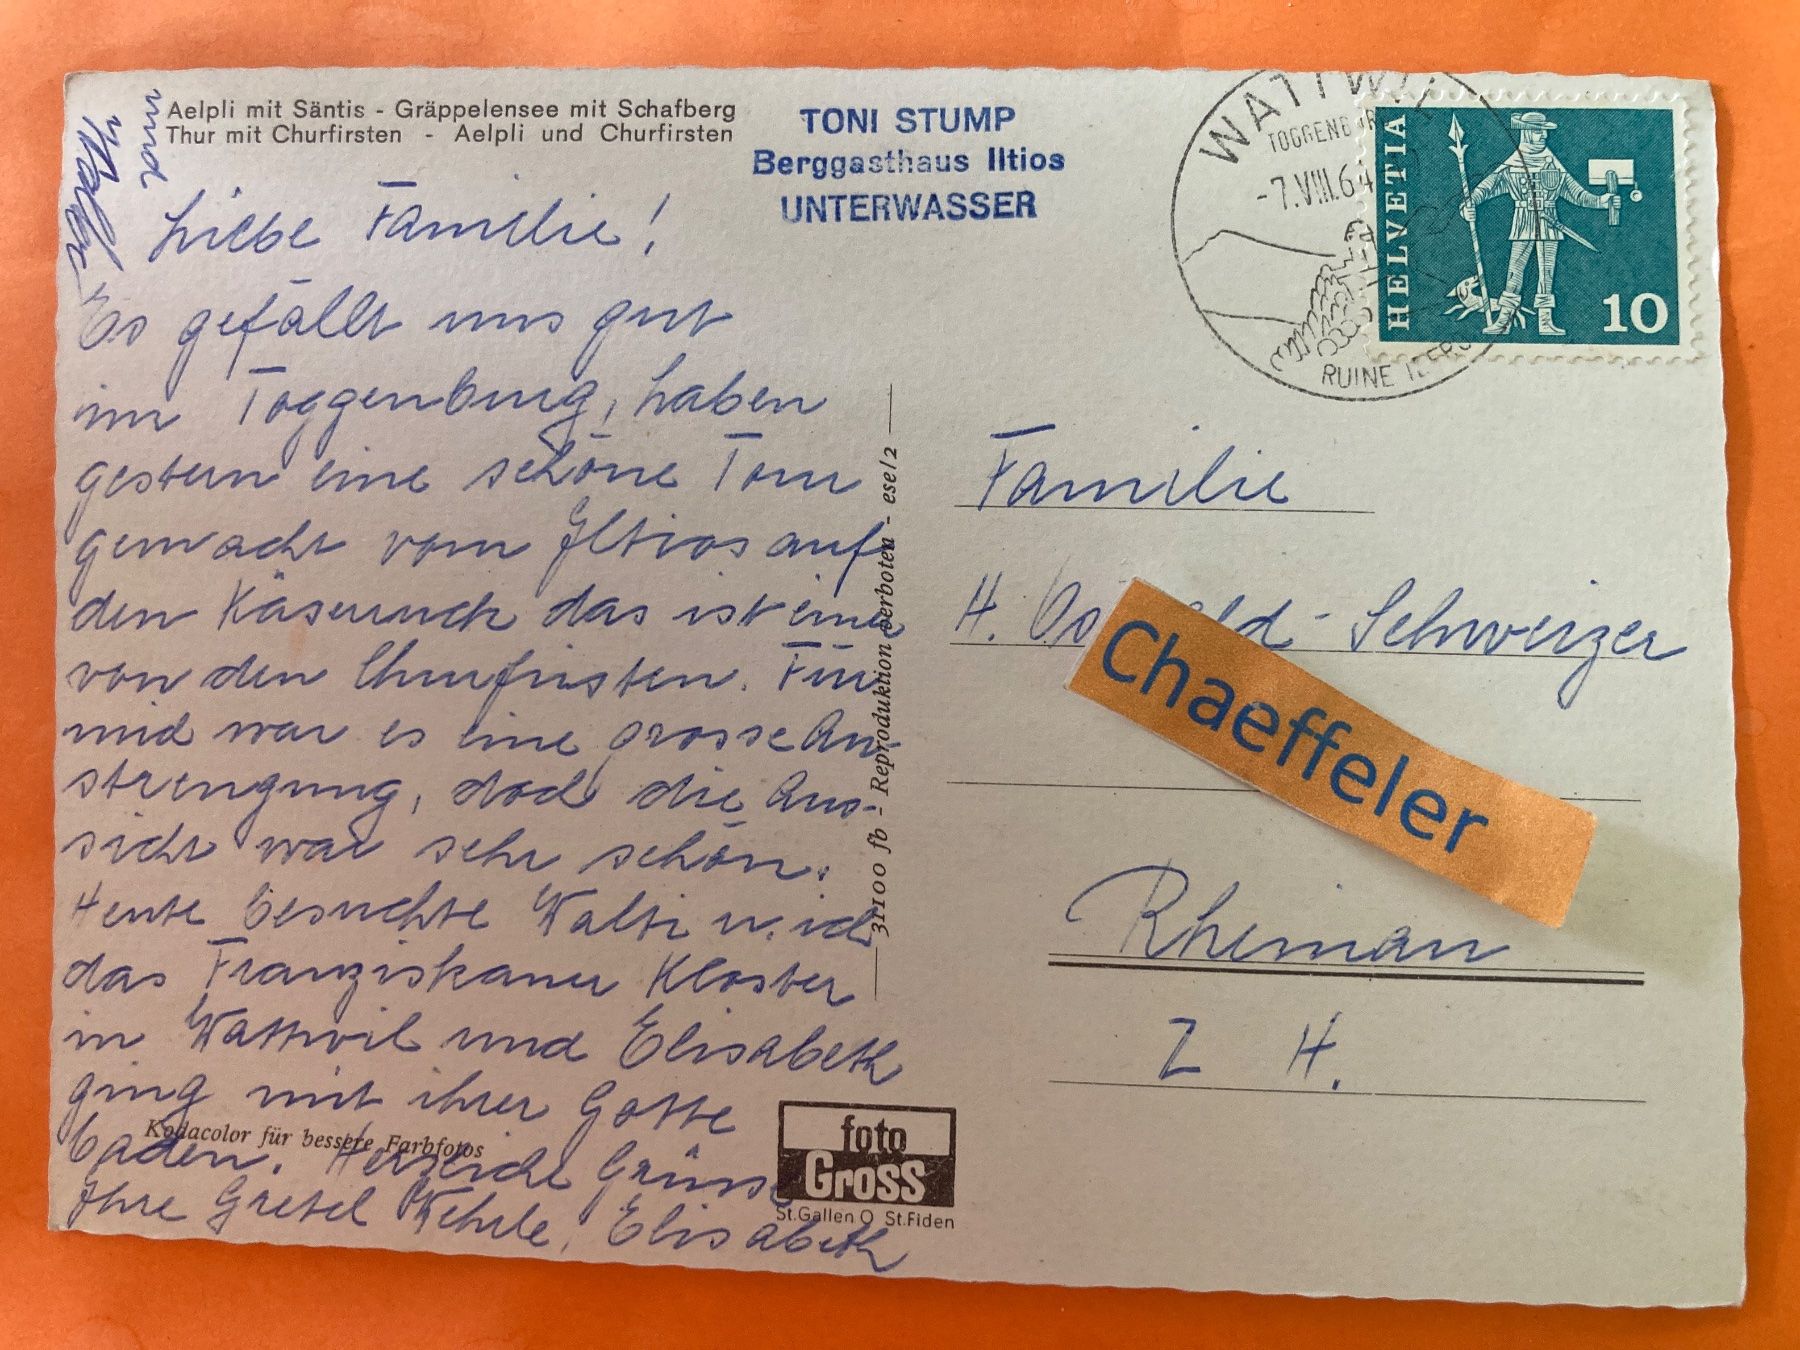 Aelpli mit Säntis - Gräppelensee mit Schafberg
Thur mit Churfirsten - Aelpli und Churfirsten
TONI STUMP
Berggasthaus Iltios
UNTERWASSER
WATTWIL
TOGGENBURG
-7.VIII.64
RUINE
HELVETIA
10
Liebe Familie!
Es gefällt uns gut
im Toggenburg, haben
gestern eine schöne Tour
gemacht vom Iltios auf
den Käserruck das ist einer
von den Churfirsten. Für
mich war es eine grosse An-
strengung, doch die Aus-
sicht war sehr schön.
Heute besuchte Walti u. ich
das Franziskaner Kloster
in Wattwil und Elisabeth
ging mit ihrer Gotte
baden. Herzliche Grüsse
Ihre Gretel Wehrle, Elisabeth
Kodacolor für bessere Farbfotos
31100 fb - Reproduktion verboten - esel2
foto
Gross
St.Gallen O St.Fiden
Familie
H. Schweizer
Chaeffeler
Rheinau
Z H.